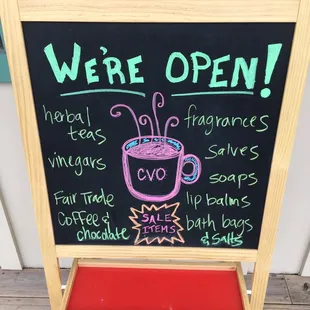 WE'RE OPEN!
herbal
teas
vinegars
Fair Trade
Coffee &
chocolate
CVO
SALE
ITEMS
fragrances
Salves
soaps
lip balms
bath bags
& Salts